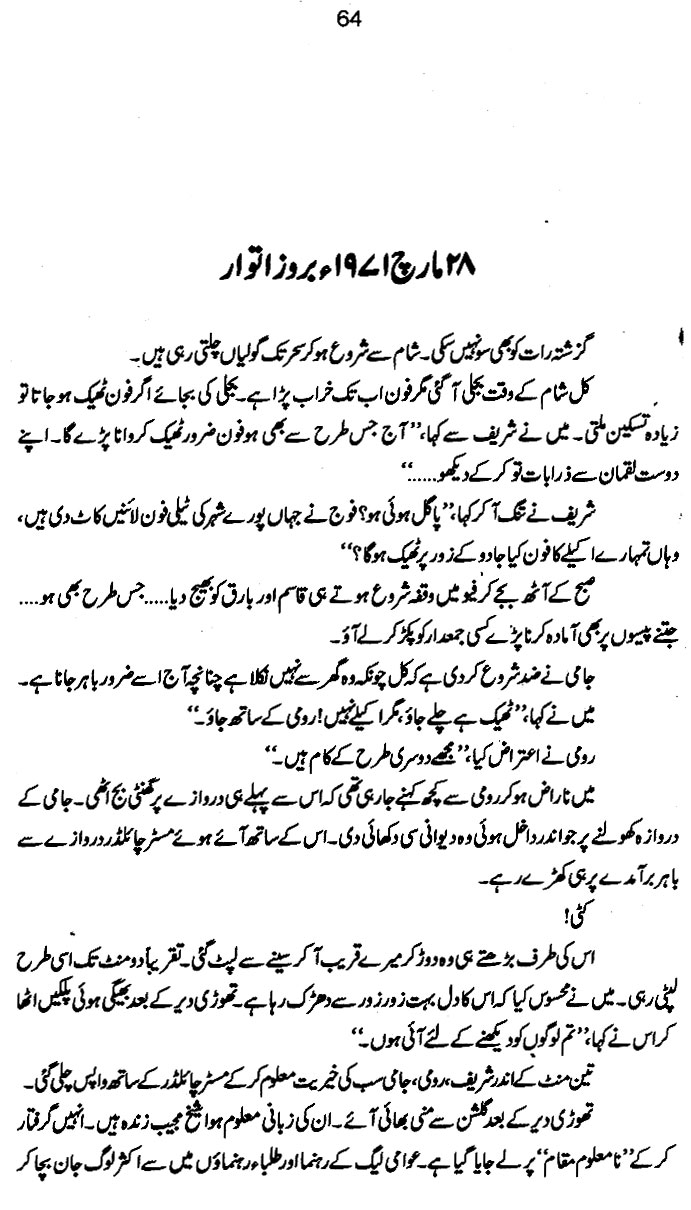 64
۲۸ مارچ ۱۹۷۱ء بروز اتوار
گزشتہ رات کو بھی سو نہیں سکی۔ شام سے شروع ہو کر سحر تک گولیاں چلتی رہی ہیں۔
کل شام کے وقت بجلی آ گئی مگر فون اب تک خراب پڑا ہے۔ بجلی کی بجائے اگر فون ٹھیک ہو جاتا تو
زیادہ تسکین ملتی۔ میں نے شریف سے کہا،”آج جس طرح سے بھی ہو فون ضرور ٹھیک کروانا پڑے گا۔ اپنے
دوست لقمان سے ذرا بات تو کر کے دیکھو......“
شریف نے تنگ آ کر کہا،”پاگل ہوئی ہو؟ فوج نے جہاں پورے شہر کی ٹیلی فون لائنیں کاٹ دی ہیں،
وہاں تمہارے اکیلے کا فون کیا جادو کے زور پر ٹھیک ہو گا؟“
صبح کے آٹھ بجے کرفیو میں وقفہ شروع ہوتے ہی قاسم اور بارق کو بھیج دیا.....جس طرح بھی ہو....
جتنے پیسوں پر بھی آمادہ کرنا پڑے کسی جمعدار کو پکڑ کر لے آؤ۔
جامی نے ضد شروع کر دی ہے کہ کل چونکہ وہ گھر سے نہیں نکلا ہے چنانچہ آج اسے ضرور باہر جانا ہے۔
میں نے کہا،”ٹھیک ہے چلے جاؤ، مگر اکیلے نہیں! رومی کے ساتھ جاؤ۔“
رومی نے اعتراض کیا،”مجھے دوسری طرح کے کام ہیں۔“
میں ناراض ہو کر رومی سے کچھ کہنے جا رہی تھی کہ اس سے پہلے ہی دروازے پر گھنٹی بج اٹھی۔ جامی کے
دروازہ کھولنے پر جو اندر داخل ہوئی وہ دیوانی سی دکھائی دی۔ اس کے ساتھ آئے ہوئے مسٹر چائلڈر دروازے سے
باہر برآمدے پر ہی کھڑے رہے۔
کٹی!
اس کی طرف بڑھتے ہی وہ دوڑ کر میرے قریب آ کر سینے سے لپٹ گئی۔ تقریباً دو منٹ تک اسی طرح
لپٹی رہی۔ میں نے محسوس کیا کہ اس کا دل بہت زور زور سے دھڑک رہا ہے۔ تھوڑی دیر کے بعد بھیگی ہوئی پلکیں اٹھا
کر اس نے کہا،”تم لوگوں کو دیکھنے کے لئے آئی ہوں۔“
تین منٹ کے اندر شریف، رومی، جامی سب کی خیریت معلوم کر کے مسٹر چائلڈر کے ساتھ واپس چلی گئی۔
تھوڑی دیر کے بعد گلشن سے منی بھائی آئے۔ ان کی زبانی معلوم ہوا شیخ مجیب زندہ ہیں۔ انہیں گرفتار
کر کے ”نامعلوم مقام“ پر لے جایا گیا ہے۔ عوامی لیگ کے رہنما اور طلباء رہنماؤں میں سے اکثر لوگ جان بچا کر